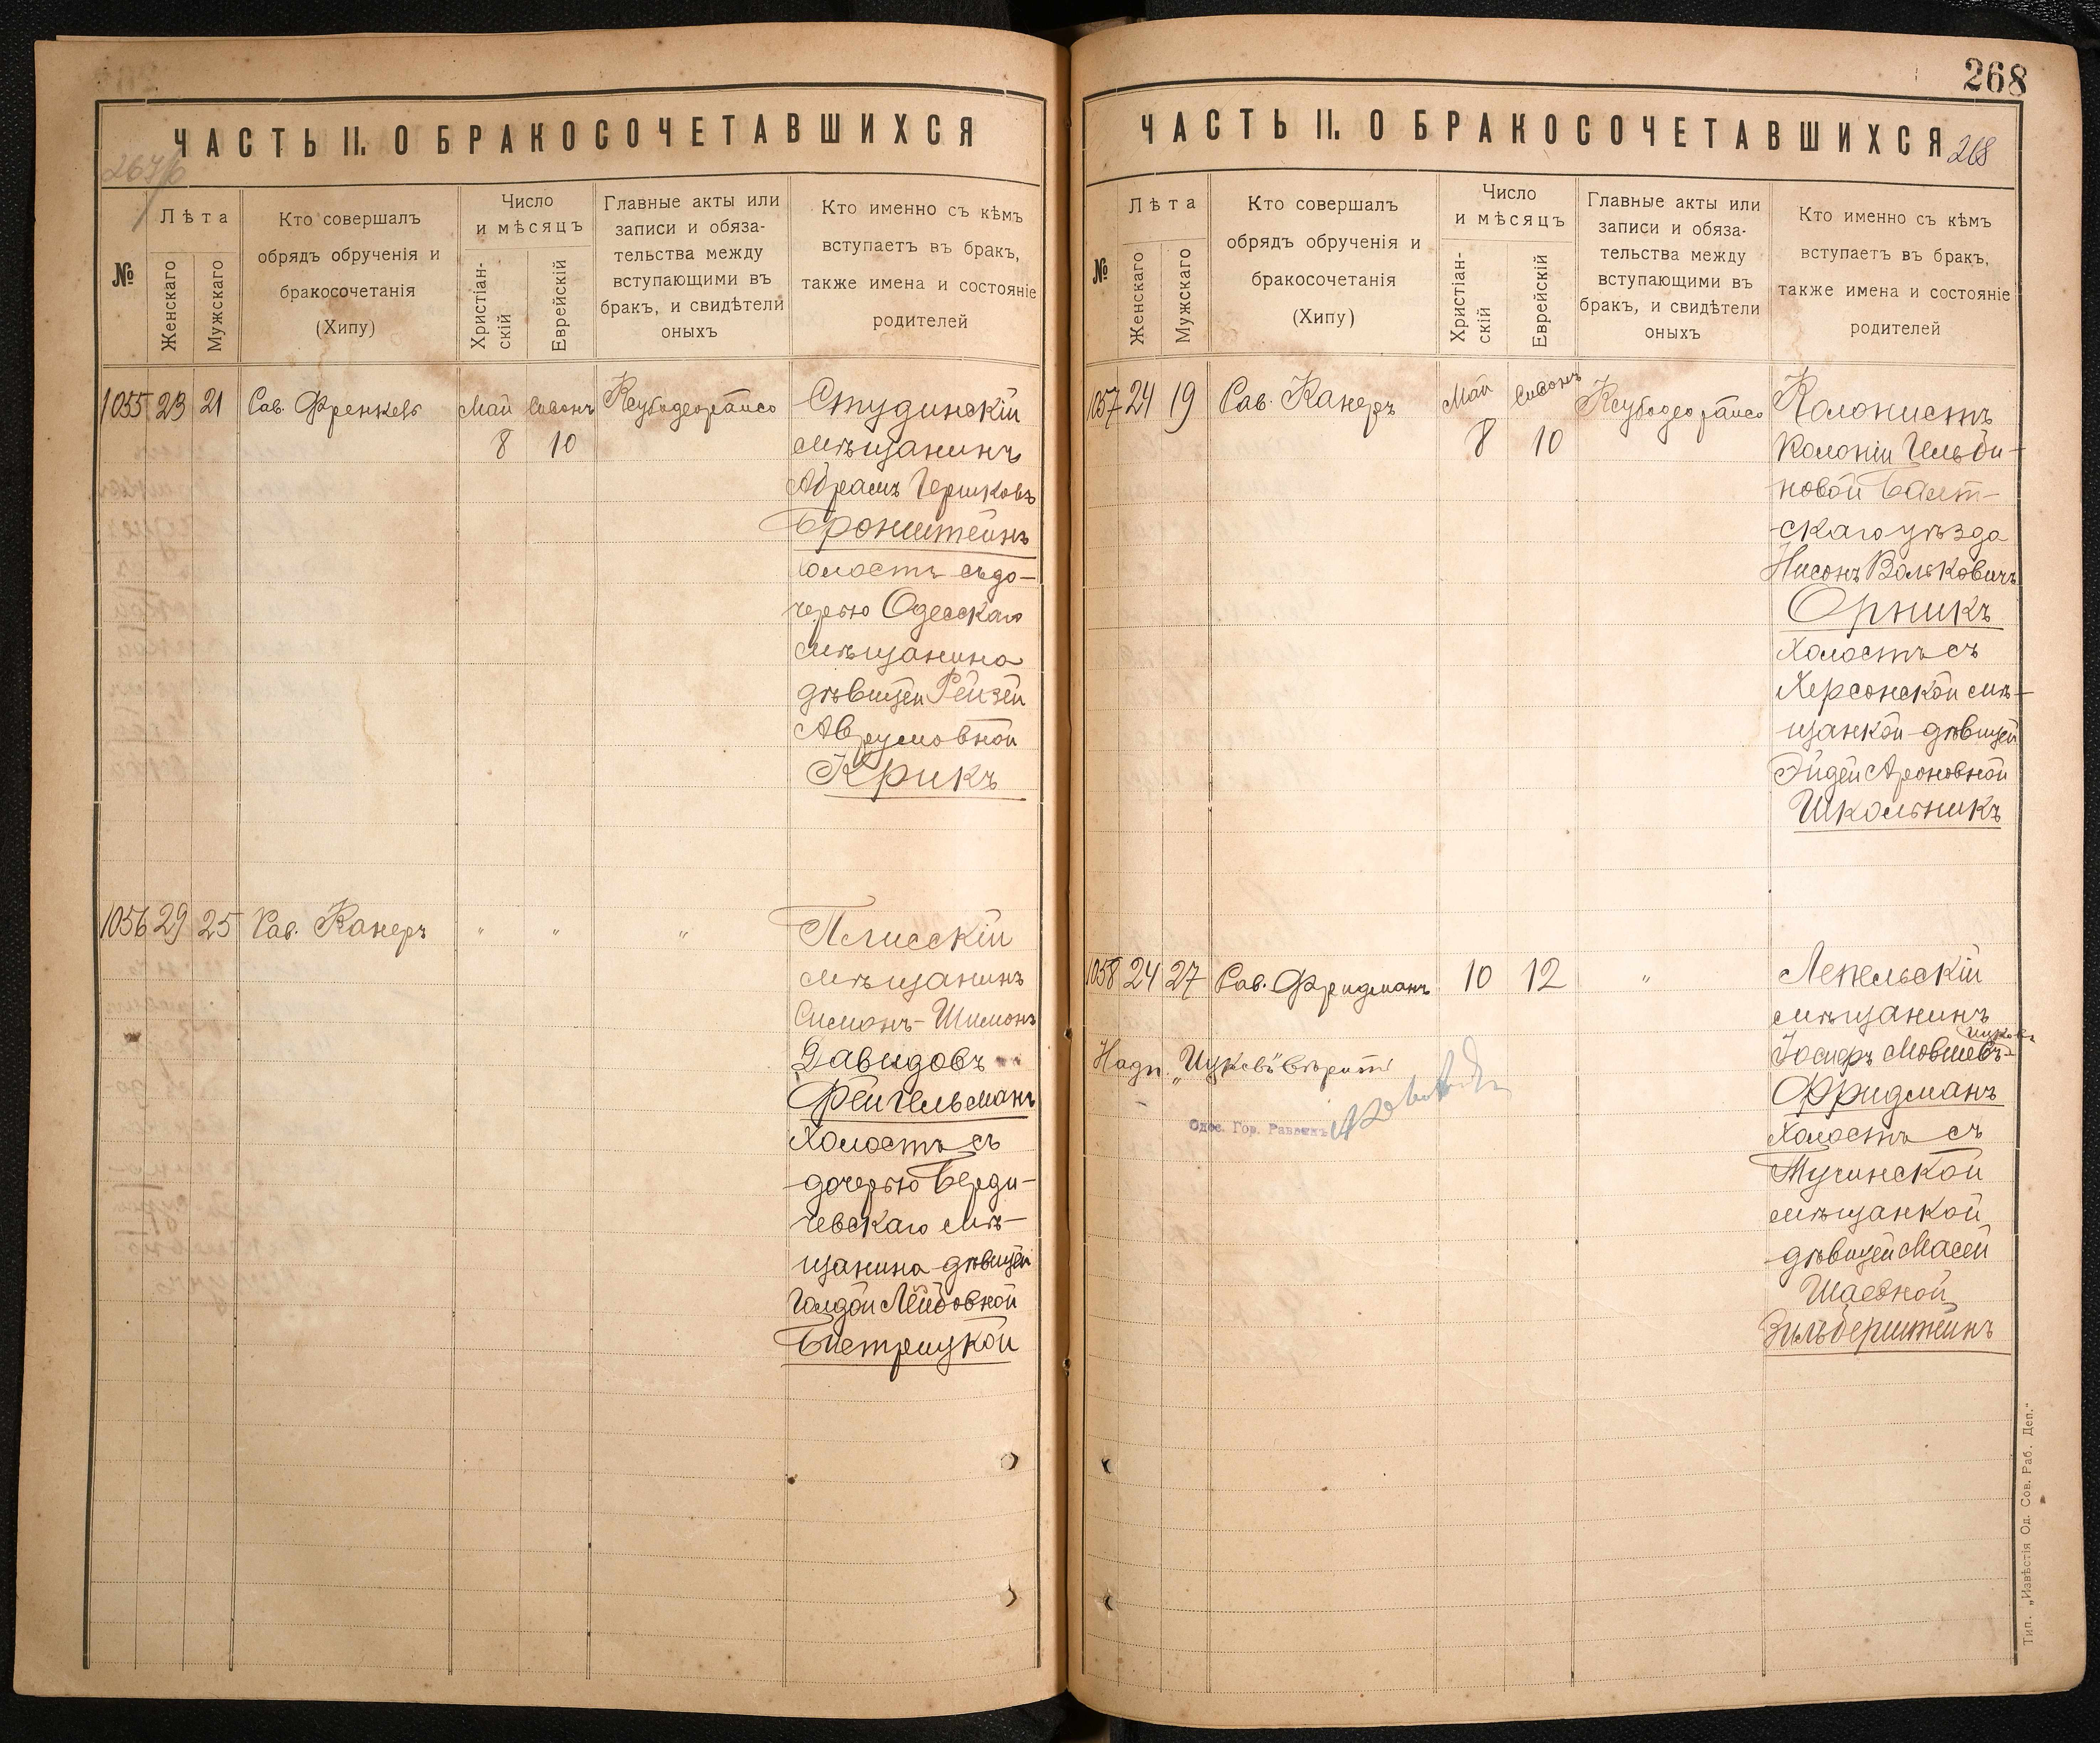 ЧАСТЬ II. О БРАКОСОЧЕТАВШИХСЯ
№
Лѣта
Женскаго
Мужскаго
Кто совершалъ
обрядъ обрученія и
бракосочетанія
(Хипу)
Число
и мѣсяцъ
Христіан-
скій
Еврейскій
Главные акты или
записи и обяза-
тельства между
вступающими въ
бракъ, и свидѣтели
оныхъ
Кто именно съ кѣмъ
вступаетъ въ бракъ,
также имена и состояніе
родителей
1055 23 21 Рав. Френкель Май Сивонъ
8 10
Студинскій
мѣщанинъ
Абрамъ Гершковъ
Бронштейнъ
холостъ съ до-
черью Одесскаго
мѣщанина
дѣвицей Рейзей
Аврумовной
Крикъ
1056 29 25 Рав. Канеръ " " "
Плисскій
мѣщанинъ
Симонъ-Шимонъ
Давидовъ
Фейгельманъ
Холостъ съ
дочерью Берди-
чевскаго мѣ-
щанина дѣвицей
Голдой Лейбовной
Бистрицкой
268
ЧАСТЬ II. О БРАКОСОЧЕТАВШИХСЯ
268
№
Лѣта
Женскаго
Мужскаго
Кто совершалъ
обрядъ обрученія и
бракосочетанія
(Хипу)
Число
и мѣсяцъ
Христіан-
скій
Еврейскій
Главные акты или
записи и обяза-
тельства между
вступающими въ
бракъ, и свидѣтели
оныхъ
Кто именно съ кѣмъ
вступаетъ въ бракъ,
также имена и состояніе
родителей
1057 24 19 Рав. Канеръ Май Сивонъ
8 10
Колонистъ
Колоніи Гельби-
новой Балт-
скаго уѣзда
Нисонъ Вольковичъ
Орникъ
Холостъ съ
Херсонской мѣ-
щанкой дѣвицей
Эйдей Ароновной
Школьникъ
1058 24 27 Рав. Фридманъ 10 12 "
Лепельскій
мѣщанинъ
Ицковъ
Іосифъ Мовшевъ-
Фридманъ
Холостъ съ
мѣщанкой
дѣвицей Масей
Шаевной
Зильберштейнъ
Надп. „Ицковъ" вѣрить
Одес. Гор. Раввинъ
Тип. „Извѣстія Од. Сов. Раб. Деп."